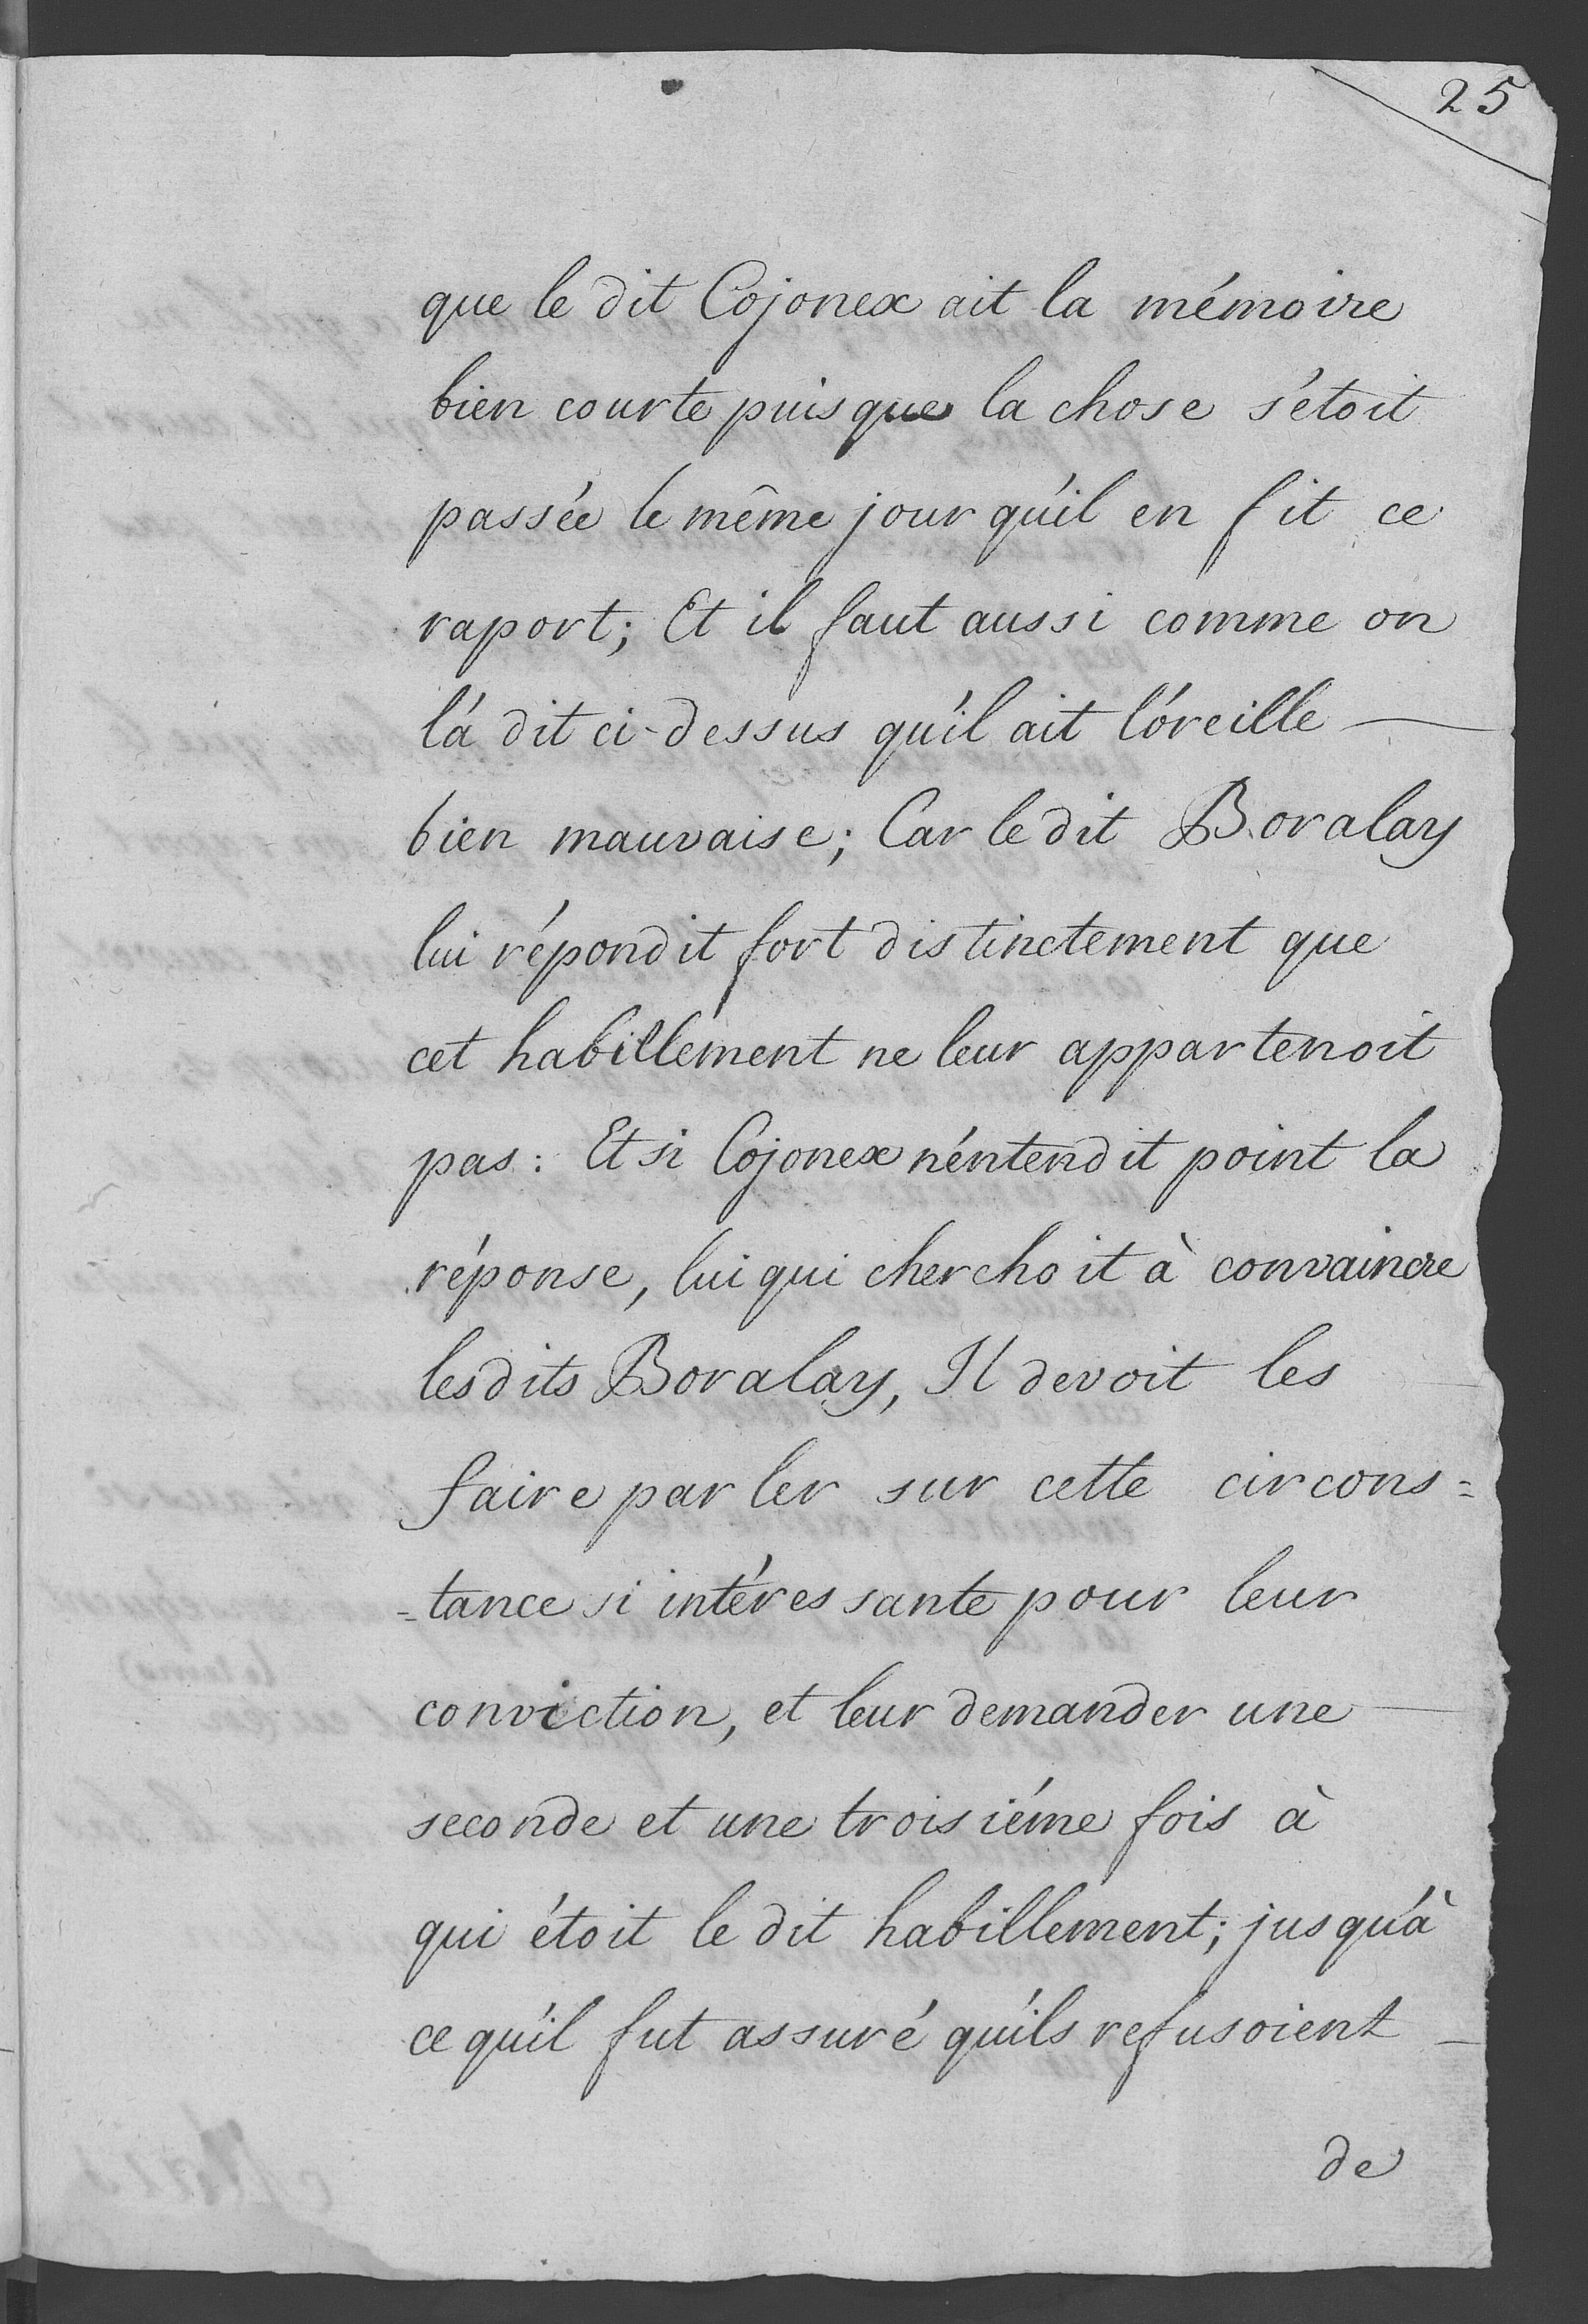 25
que le dit Cojonex ait la mémoire
bien courte puisque la chose s'étoit
passée le même jour qu'il en fit ce
raport; Et il faut aussi comme on
l'a dit ci-dessus qu'il ait l'oreille
bien mauvaise; Car le dit Boralay
lui répondit fort distinctement que
cet habillement ne leur appartenoit
pas: Et si Cojonex n'entendit point la
réponse, lui qui cherchoit à convaincre
lesdits Boralay, Il devoit les
faire parler sur cette circons=
=tance si intéressante pour leur
conviction, et leur demander une
seconde et une troisiéme fois à
qui étoit le dit habillement; jusqu'à
ce qu'il fut assuré qu'ils refusoient
de